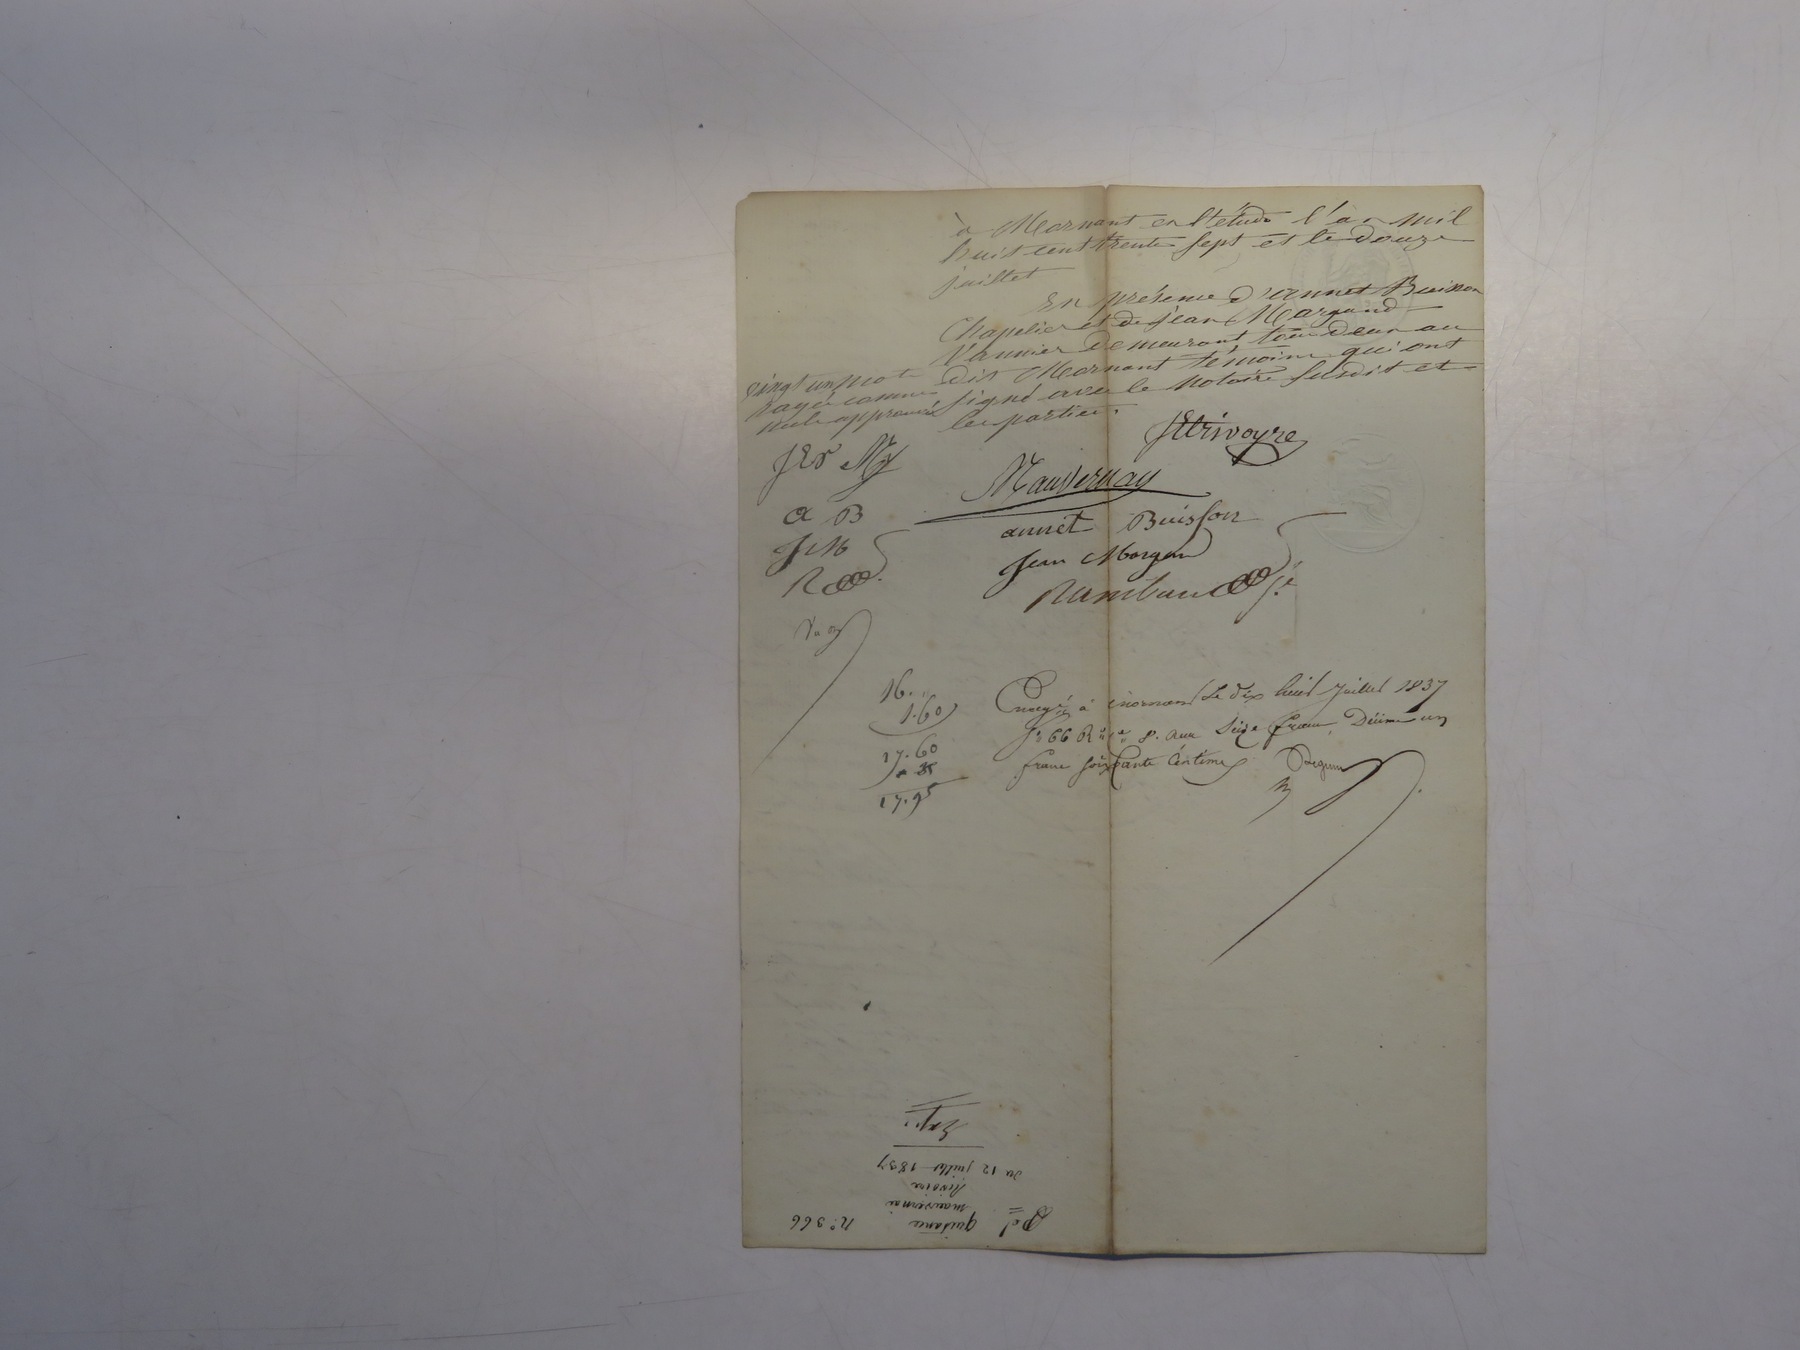 à Mornant en l'étude l'an mil
huit cent trente sept et le douze
juillet
En présence d'annet Buisson
Chapelier et de jean Margand
Vannier demeurant tous deux au
dit Mornant témoins qui ont
signé avec le Notaire susdit et
les parties.
vingt un mots
rayés comme
nuls approuvés
JEr My
a B
J M
R
JERivoyre
Mauvernay
annet Buisson
Jean Morgand
Rambaud
16. "
1.60
17.60
" 35
17.95
Enregé à mornant Le dix huit juillet 1837
fo 66 Ro ce 8. Reçu Seize francs, Décime un
franc soixante centimes
No. 366
quitance
mauvernai
Rivoire
du 12 juillet 1837
Expé